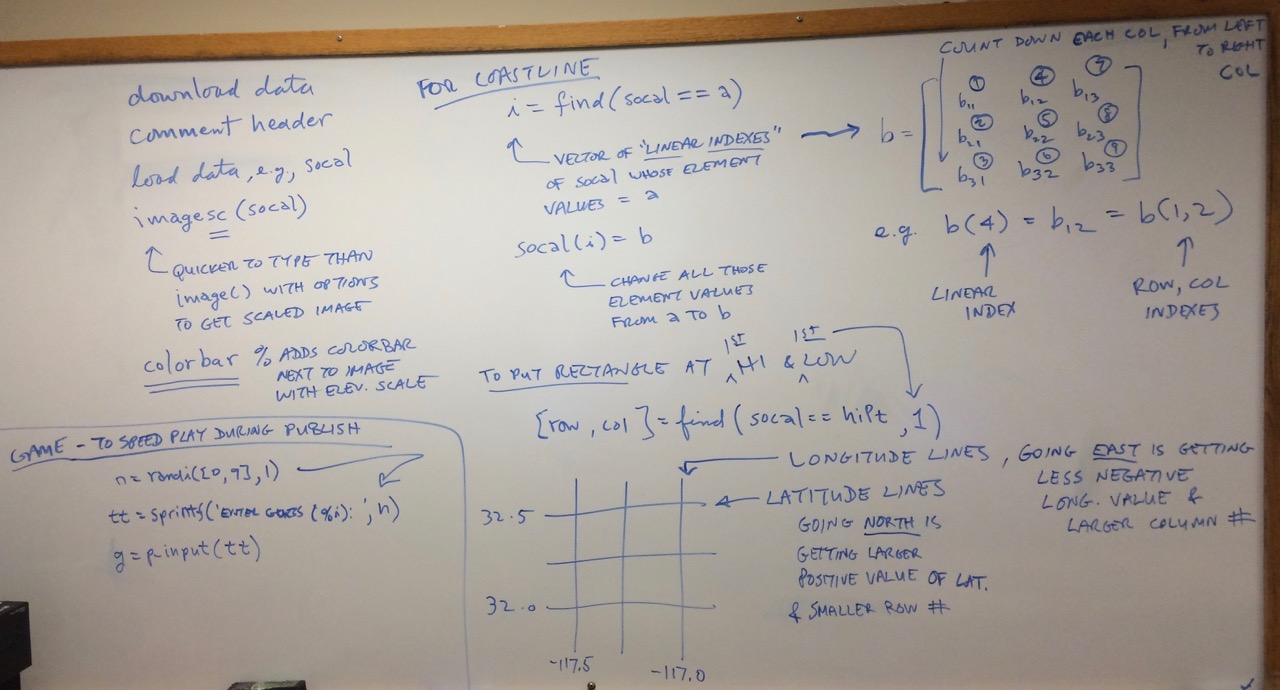 download data
comment header
load data, e.g., socal
imagesc (socal)
QUICKER TO TYPE THAN
image() WITH OPTIONS
TO GET SCALED IMAGE
colorbar % ADDS COLORBAR
NEXT TO IMAGE
WITH ELEV. SCALE
FOR COASTLINE
i = find(socal == a)
VECTOR OF "LINEAR INDEXES"
OF socal WHOSE ELEMENT
VALUES = a
socal(i) = b
CHANGE ALL THOSE
ELEMENT VALUES
FROM a TO b
COUNT DOWN EACH COL, FROM LEFT
TO RIGHT
COL
1 4 7
b11 b12 b13
2 5 8
b = b21 b22 b23
3 6 9
b31 b32 b33
e.g. b(4) = b12 = b(1,2)
LINEAR
INDEX
ROW, COL
INDEXES
1ST 1ST
TO PUT RECTANGLE AT HI & LOW
[row, col] = find(socal == hiPt, 1)
GAME - TO SPEED PLAY DURING PUBLISH
n = randi([0, 9], 1)
tt = sprintf('ENTER GUESS (%i): ', n)
g = p-input(tt)
LONGITUDE LINES, GOING EAST IS GETTING
LESS NEGATIVE
LONG. VALUE &
LARGER COLUMN #
LATITUDE LINES
GOING NORTH IS
GETTING LARGER
POSITIVE VALUE OF LAT.
& SMALLER ROW #
32.5
32.0
-117.5 -117.0